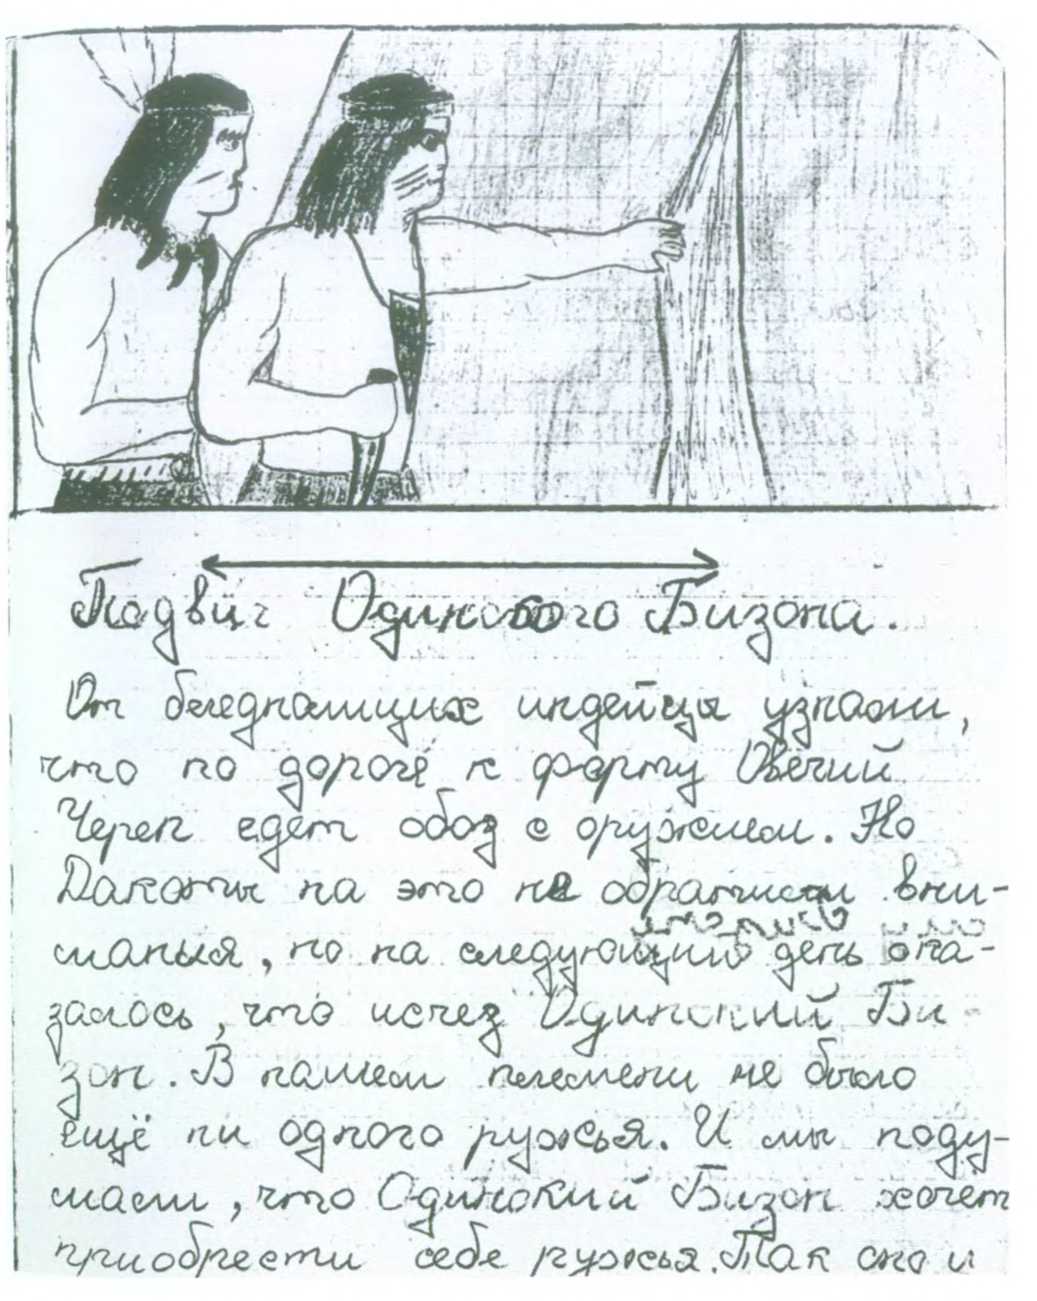 Подвиг Одинокого Бизона.
От бледнолицых индейцы узнали,
что по дороге к форту Овечий
Череп едет обоз с оружием. Но
Дакоты на это не обратили вни-
мания, но на следующий день ока-
залось, что исчез Одинокий Би
зон. В нашем племени не было
ещё ни одного ружья. И мы поду-
мали, что Одинокий Бизон хочет
приобрести себе ружья. Так оно и